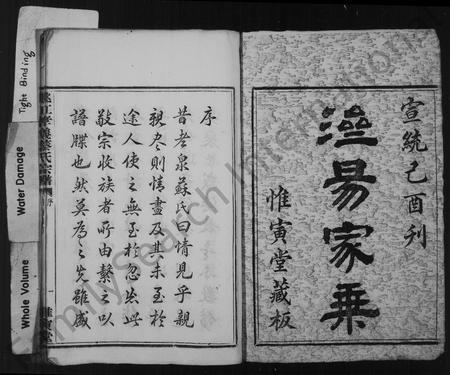 宣統己酉刊
澁易家乗
惟寅堂藏板
序
昔老泉蘇氏曰情見乎親
親盡則情盡及其未至於
途人使之無至於忽忘此
敬宗收族者所由繫之以
譜牒也然莫為之先雖盛
蔡氏宗譜
序
惟寅堂
Tight Binding
Water Damage
Whole Volume
FamilySearch International